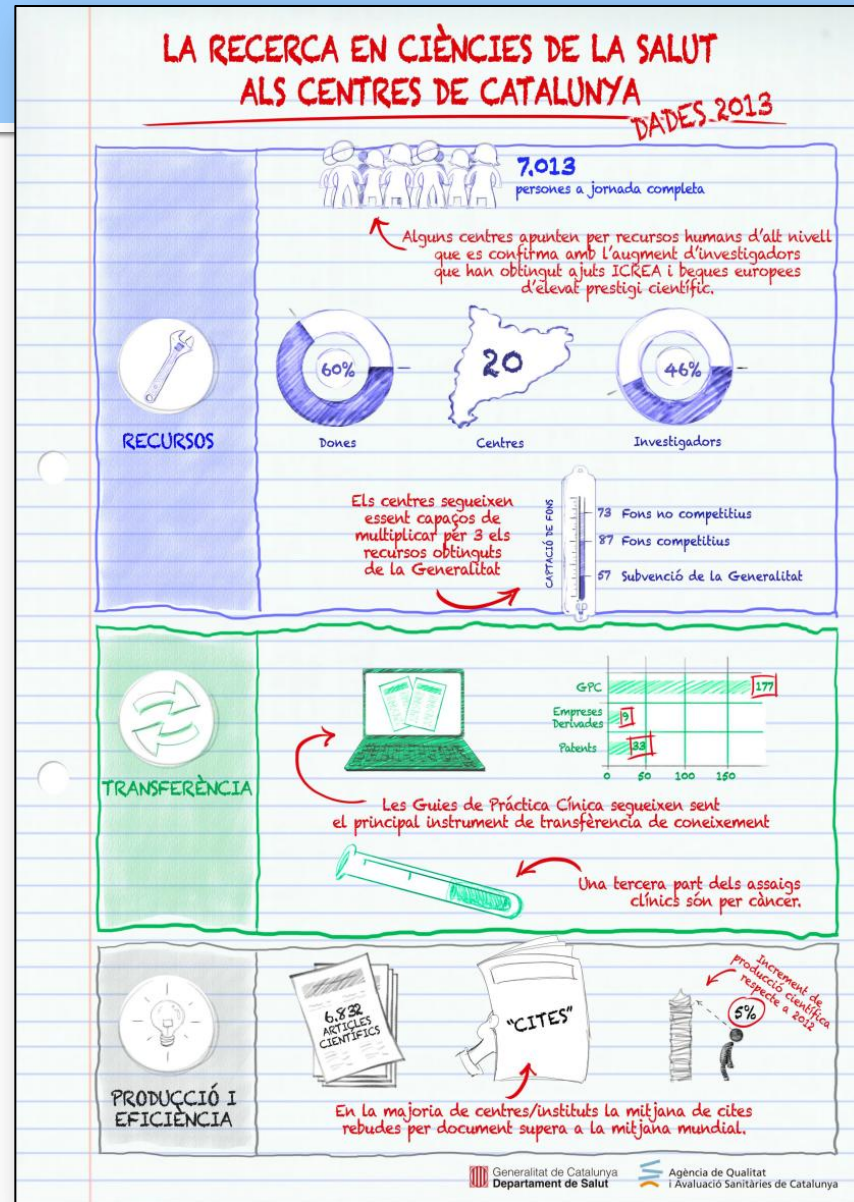 LA RECERCA EN CIÈNCIES DE LA SALUT
ALS CENTRES DE CATALUNYA
DADES 2013
7.013
persones a jornada completa
Alguns centres apunten per recursos humans d'alt nivell
que es confirma amb l'augment d'investigadors
que han obtingut ajuts ICREA i beques europees
d'elevat prestigi científic.
RECURSOS
60%
Dones
20
Centres
46%
Investigadors
Els centres segueixen
essent capaços de
multiplicar per 3 els
recursos obtinguts
de la Generalitat
CAPTACIÓ DE FONS
73 Fons no competitius
87 Fons competitius
57 Subvenció de la Generalitat
TRANSFERÈNCIA
GPC
177
Empreses
Derivades
9
Patents
33
0 50 100 150
Les Guies de Práctica Cínica segueixen sent
el principal instrument de transfèrencia de coneixement
Una tercera part dels assaigs
clínics són per càncer.
PRODUCCIÓ I
EFICIÈNCIA
6.832
ARTICLES
CIENTÍFICS
"CITES"
Increment de
producció científica
respecte a 2012
5%
En la majoria de centres/instituts la mitjana de cites
rebudes per document supera a la mitjana mundial.
Generalitat de Catalunya
Departament de Salut
Agència de Qualitat
i Avaluació Sanitàries de Catalunya